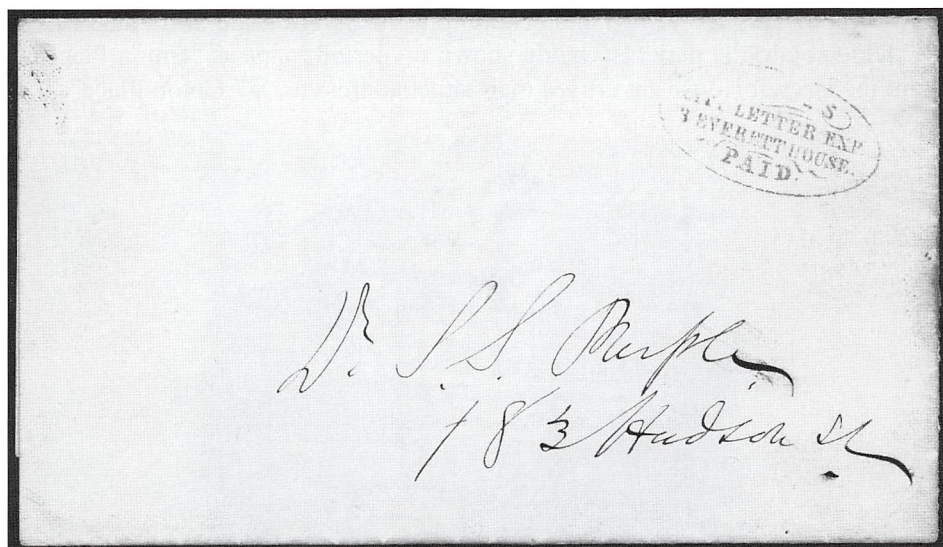 CITY LETTER EXP
3 EVERETT HOUSE.
PAID.
Dr. S. S. Purple
183 Hudson St.